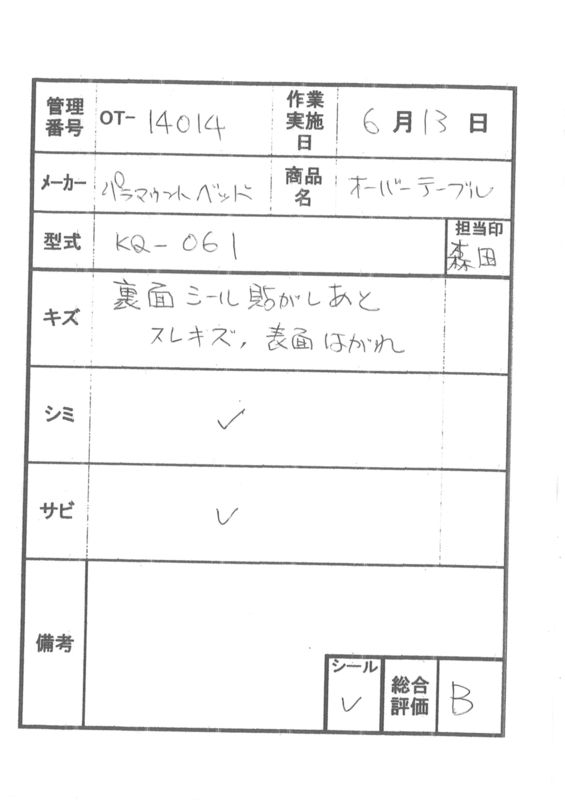 管理番号 OT- 14014 作業実施日 6月13日
メーカー パラマウントベッド 商品名 オーバーテーブル
型式 KQ-061 担当印 森田
キズ 裏面シール貼がしあと
スレキズ, 表面はがれ
シミ ✓
サビ ✓
備考
シール ✓ 総合評価 B